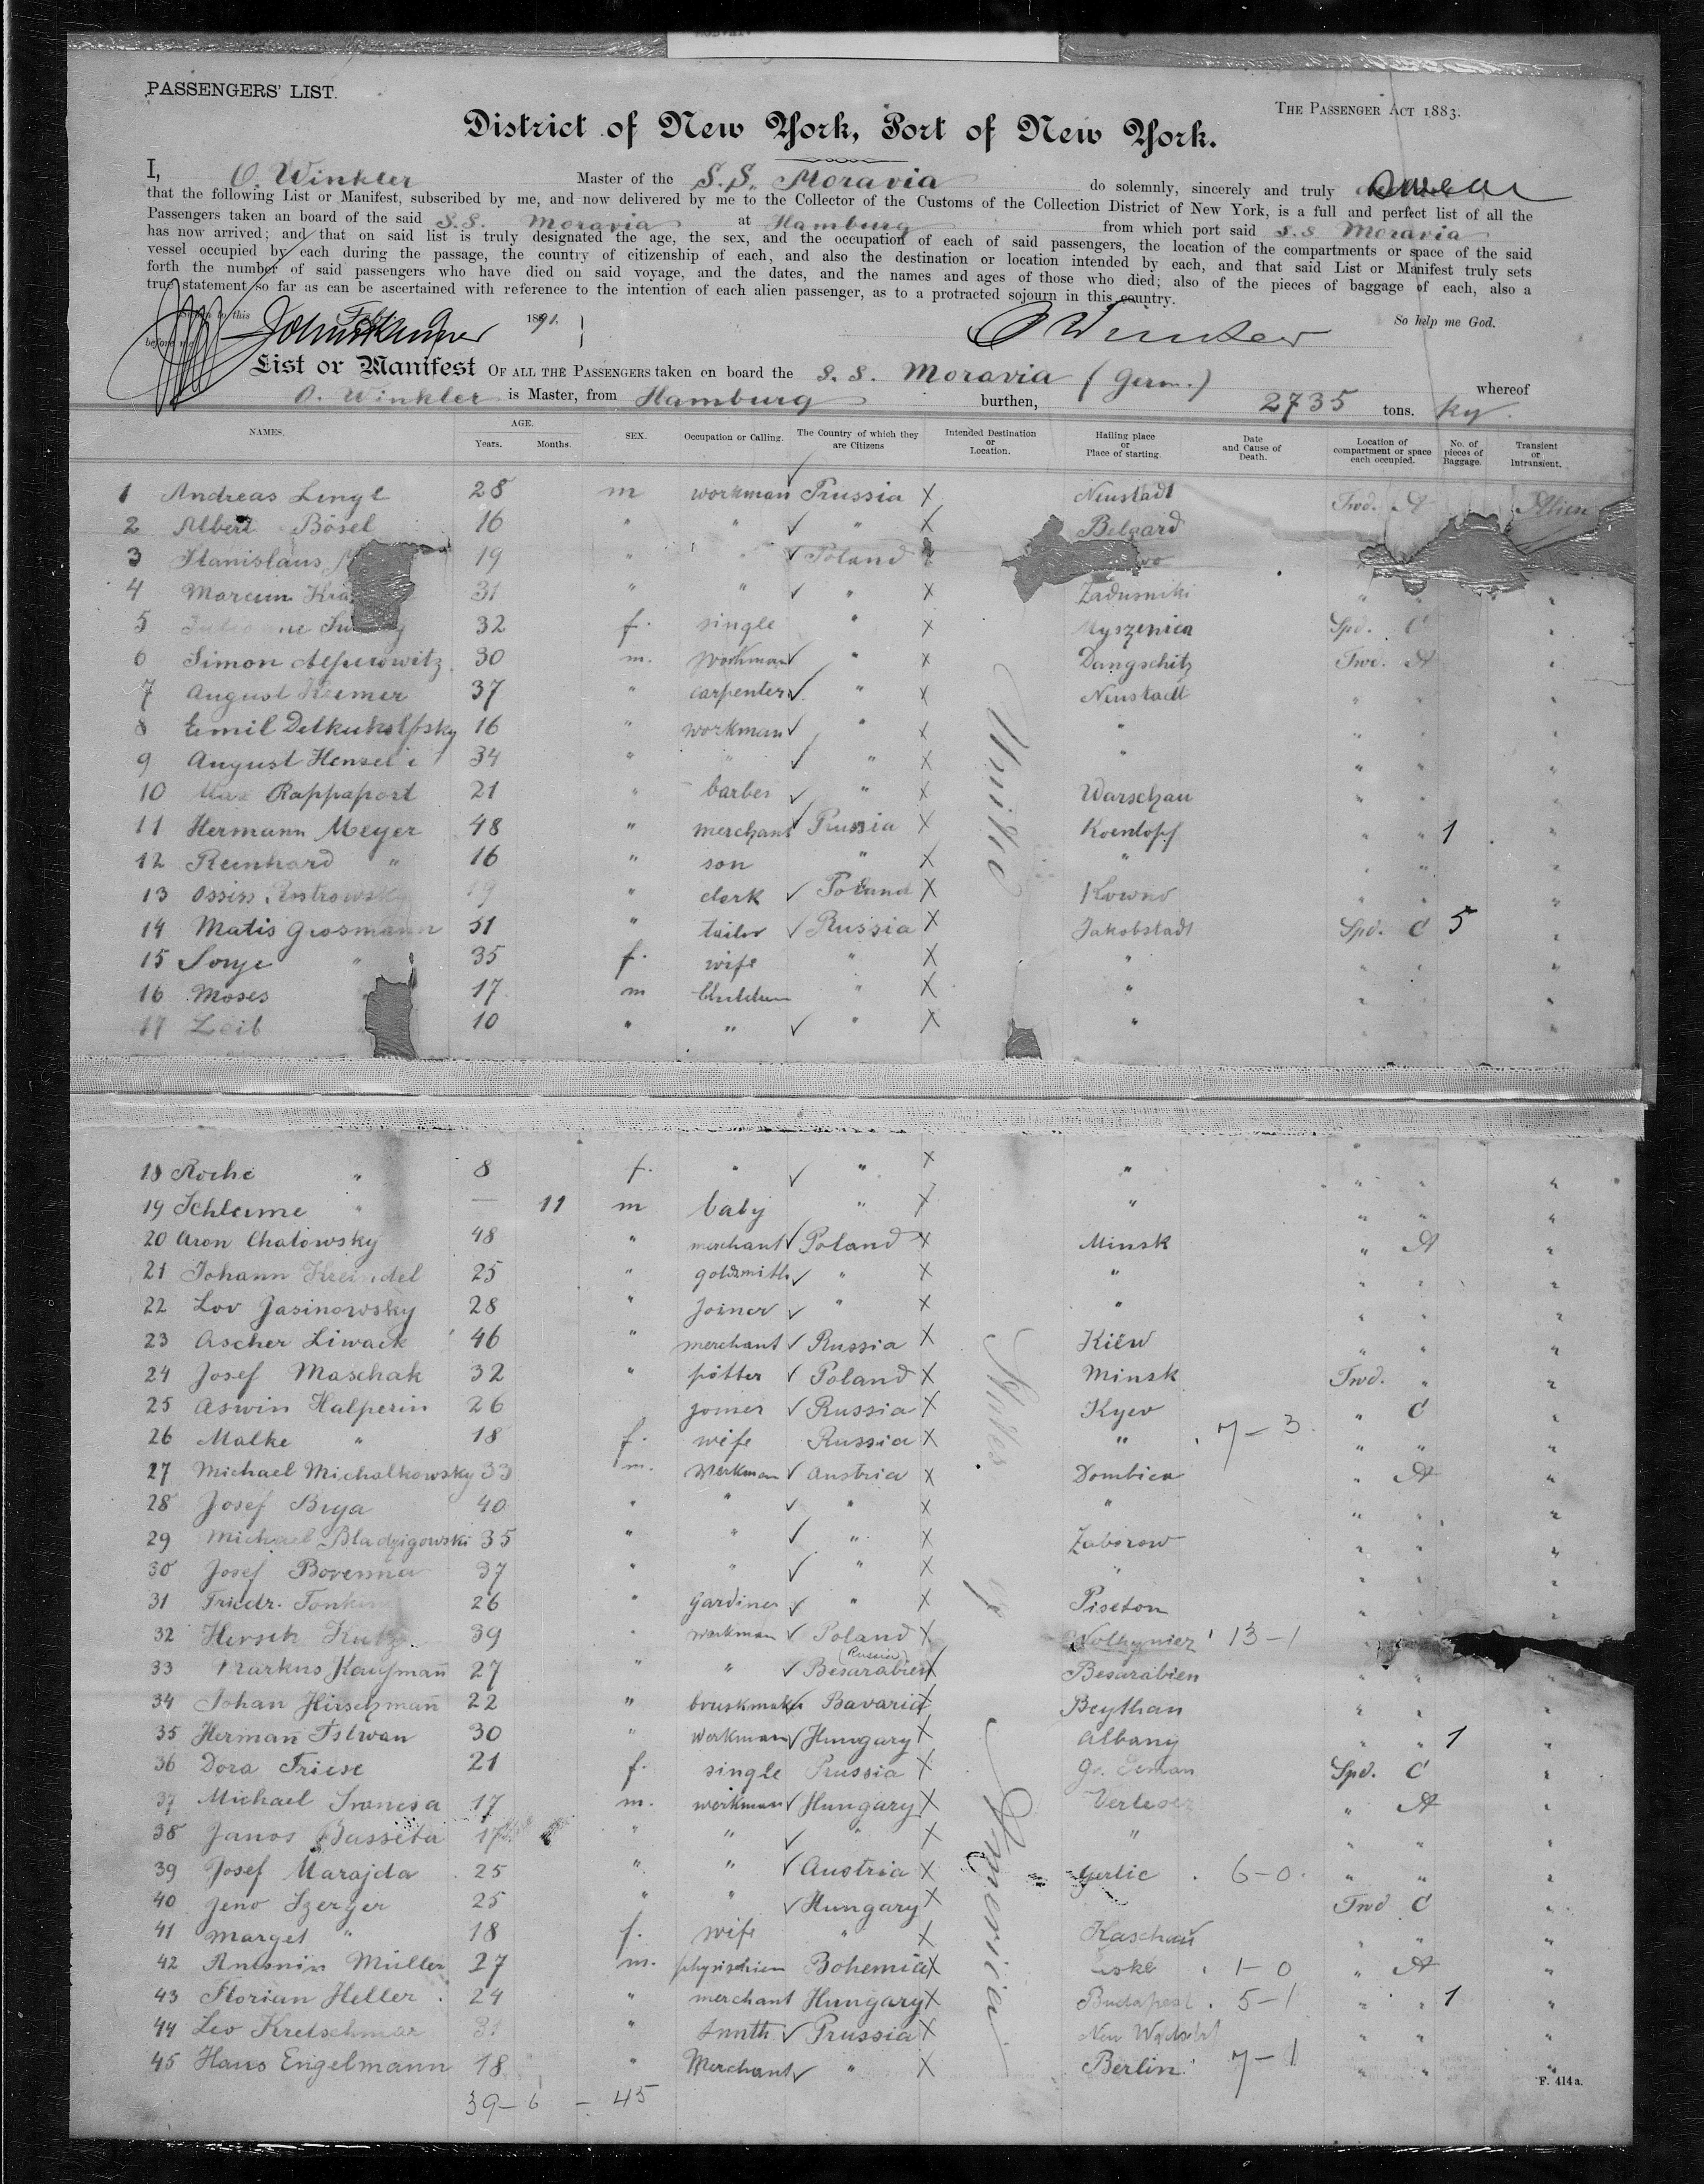 PASSENGERS' LIST.
THE PASSENGER ACT 1883.
District of New York, Port of New York.
I, O. Winkler Master of the S.S. Moravia do solemnly, sincerely and truly swear
that the following List or Manifest, subscribed by me, and now delivered by me to the Collector of the Customs of the Collection District of New York, is a full and perfect list of all the
Passengers taken an board of the said S.S. Moravia at Hamburg from which port said S.S. Moravia
has now arrived; and that on said list is truly designated the age, the sex, and the occupation of each of said passengers, the location of the compartments or space of the said
vessel occupied by each during the passage, the country of citizenship of each, and also the destination or location intended by each, and that said List or Manifest truly sets
forth the number of said passengers who have died on said voyage, and the dates, and the names and ages of those who died; also of the pieces of baggage of each, also a
true statement so far as can be ascertained with reference to the intention of each alien passenger, as to a protracted sojourn in this country.
this 1891. O Winkler So help me God.
before me
List or Manifest OF ALL THE PASSENGERS taken on board the S.S. Moravia (Germ.) whereof
O. Winkler is Master, from Hamburg burthen, 2735 tons.
NAMES. AGE. Years. Months. SEX. Occupation or Calling. The Country of which they are Citizens Intended Destination or Location. Hailing place or Place of starting. Date and Cause of Death. Location of compartment or space each occupied. No. of pieces of Baggage. Transient or Intransient.
United States of America
1 Andreas Lengl 28 m workman ✓ Prussia X Neustadt Twd. A Alien
2 Albert Bösel 16 " " ✓ " X Belgard
3 Stanislaus 19 " " ✓ Poland
4 Marcin 31 " " ✓ " X Zadusniki " " "
5 32 f. single " X Myszenica Spd. C "
6 Simon Alperowitz 30 m. workman ✓ " X Dangschitz Twd. A "
7 August Kremer 37 " carpenter ✓ " X Neustadt " " "
8 Emil 16 " workman ✓ " X " " " "
9 August Hensel 34 " " ✓ " X " " " "
10 Max Rappaport 21 " barber ✓ " X Warschau " " "
11 Hermann Meyer 48 " merchant ✓ Prussia X " " 1 "
12 Reinhard " 16 " son " X " " " "
13 19 " clerk ✓ Poland X Kowno " " "
14 Matis Grosmann 51 " tailor ✓ Russia X Jakobstadt Spd. C 5 "
15 Sorge " 35 f. wife " X " " " "
16 Moses 17 m Children " X " " " "
17 Leib 10 " " ✓ " X " " " "
18 Roche " 8 f. " ✓ " X " " " "
19 Schleime " — 11 m baby " X " " " "
20 Aron Chatowsky 48 " merchant ✓ Poland X Minsk " A "
21 Johann Kreindel 25 " goldsmith ✓ " X " " " "
22 Lov Jasinowsky 28 " joiner ✓ " X " " " "
23 Ascher Liwack 46 " merchant ✓ Russia X Kiew " " "
24 Josef Maschak 32 " potter ✓ Poland X Minsk Twd. " "
25 Aswin Halperin 26 joiner ✓ Russia X Kyev " C "
26 Malke " 18 f. wife Russia X " 7-3 " " "
27 Michael Michalkowsky 33 m. workman ✓ Austria X Dombica " A "
28 Josef Brya 40 " " ✓ " X " " " "
29 Michael Bladzigowski 35 " " ✓ " X Zaborow " " "
30 Josef Bovenna 37 " " ✓ " X " " " "
31 Friedr. 26 " gardiner ✓ " X Piseton " " "
32 Hersch Kutz 39 " workman ✓ Poland X 13-1
33 Markus Kaufmann 27 " " ✓ Besarabien (Russia) X Besarabien " " "
34 Johan Hirschmann 22 " ✓ Bavaria X Beythan " " "
35 Hermann Istwan 30 " workman ✓ Hungary X Albany " " 1 "
36 Dora Friese 21 f. single Prussia X Spd. C "
37 Michael 17 m. workman ✓ Hungary X " A "
38 Janos Basseta 17 " " ✓ " X " " " "
39 Josef Marajda 25 " " ✓ Austria X Gerlic 6-0 " " "
40 Jeno Szerzer 25 " " ✓ Hungary X Twd C "
41 Marget " 18 f. wife " X Kaschau " " "
42 Antonin Müller 27 m. Bohemia X 1-0 " A "
43 Florian Heller 24 " merchant Hungary X Budapest 5-1 " " 1 "
44 Leo Kretschmar 31 " smith ✓ Prussia X " " "
45 Hans Engelmann 18 " Merchant ✓ " X Berlin 7-1 " " "
39-6-45
F. 414a.